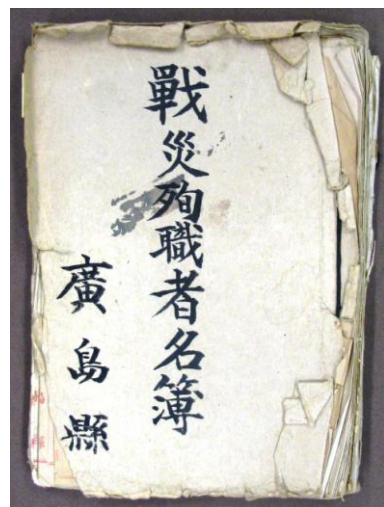 戰災殉職者名簿
廣島縣